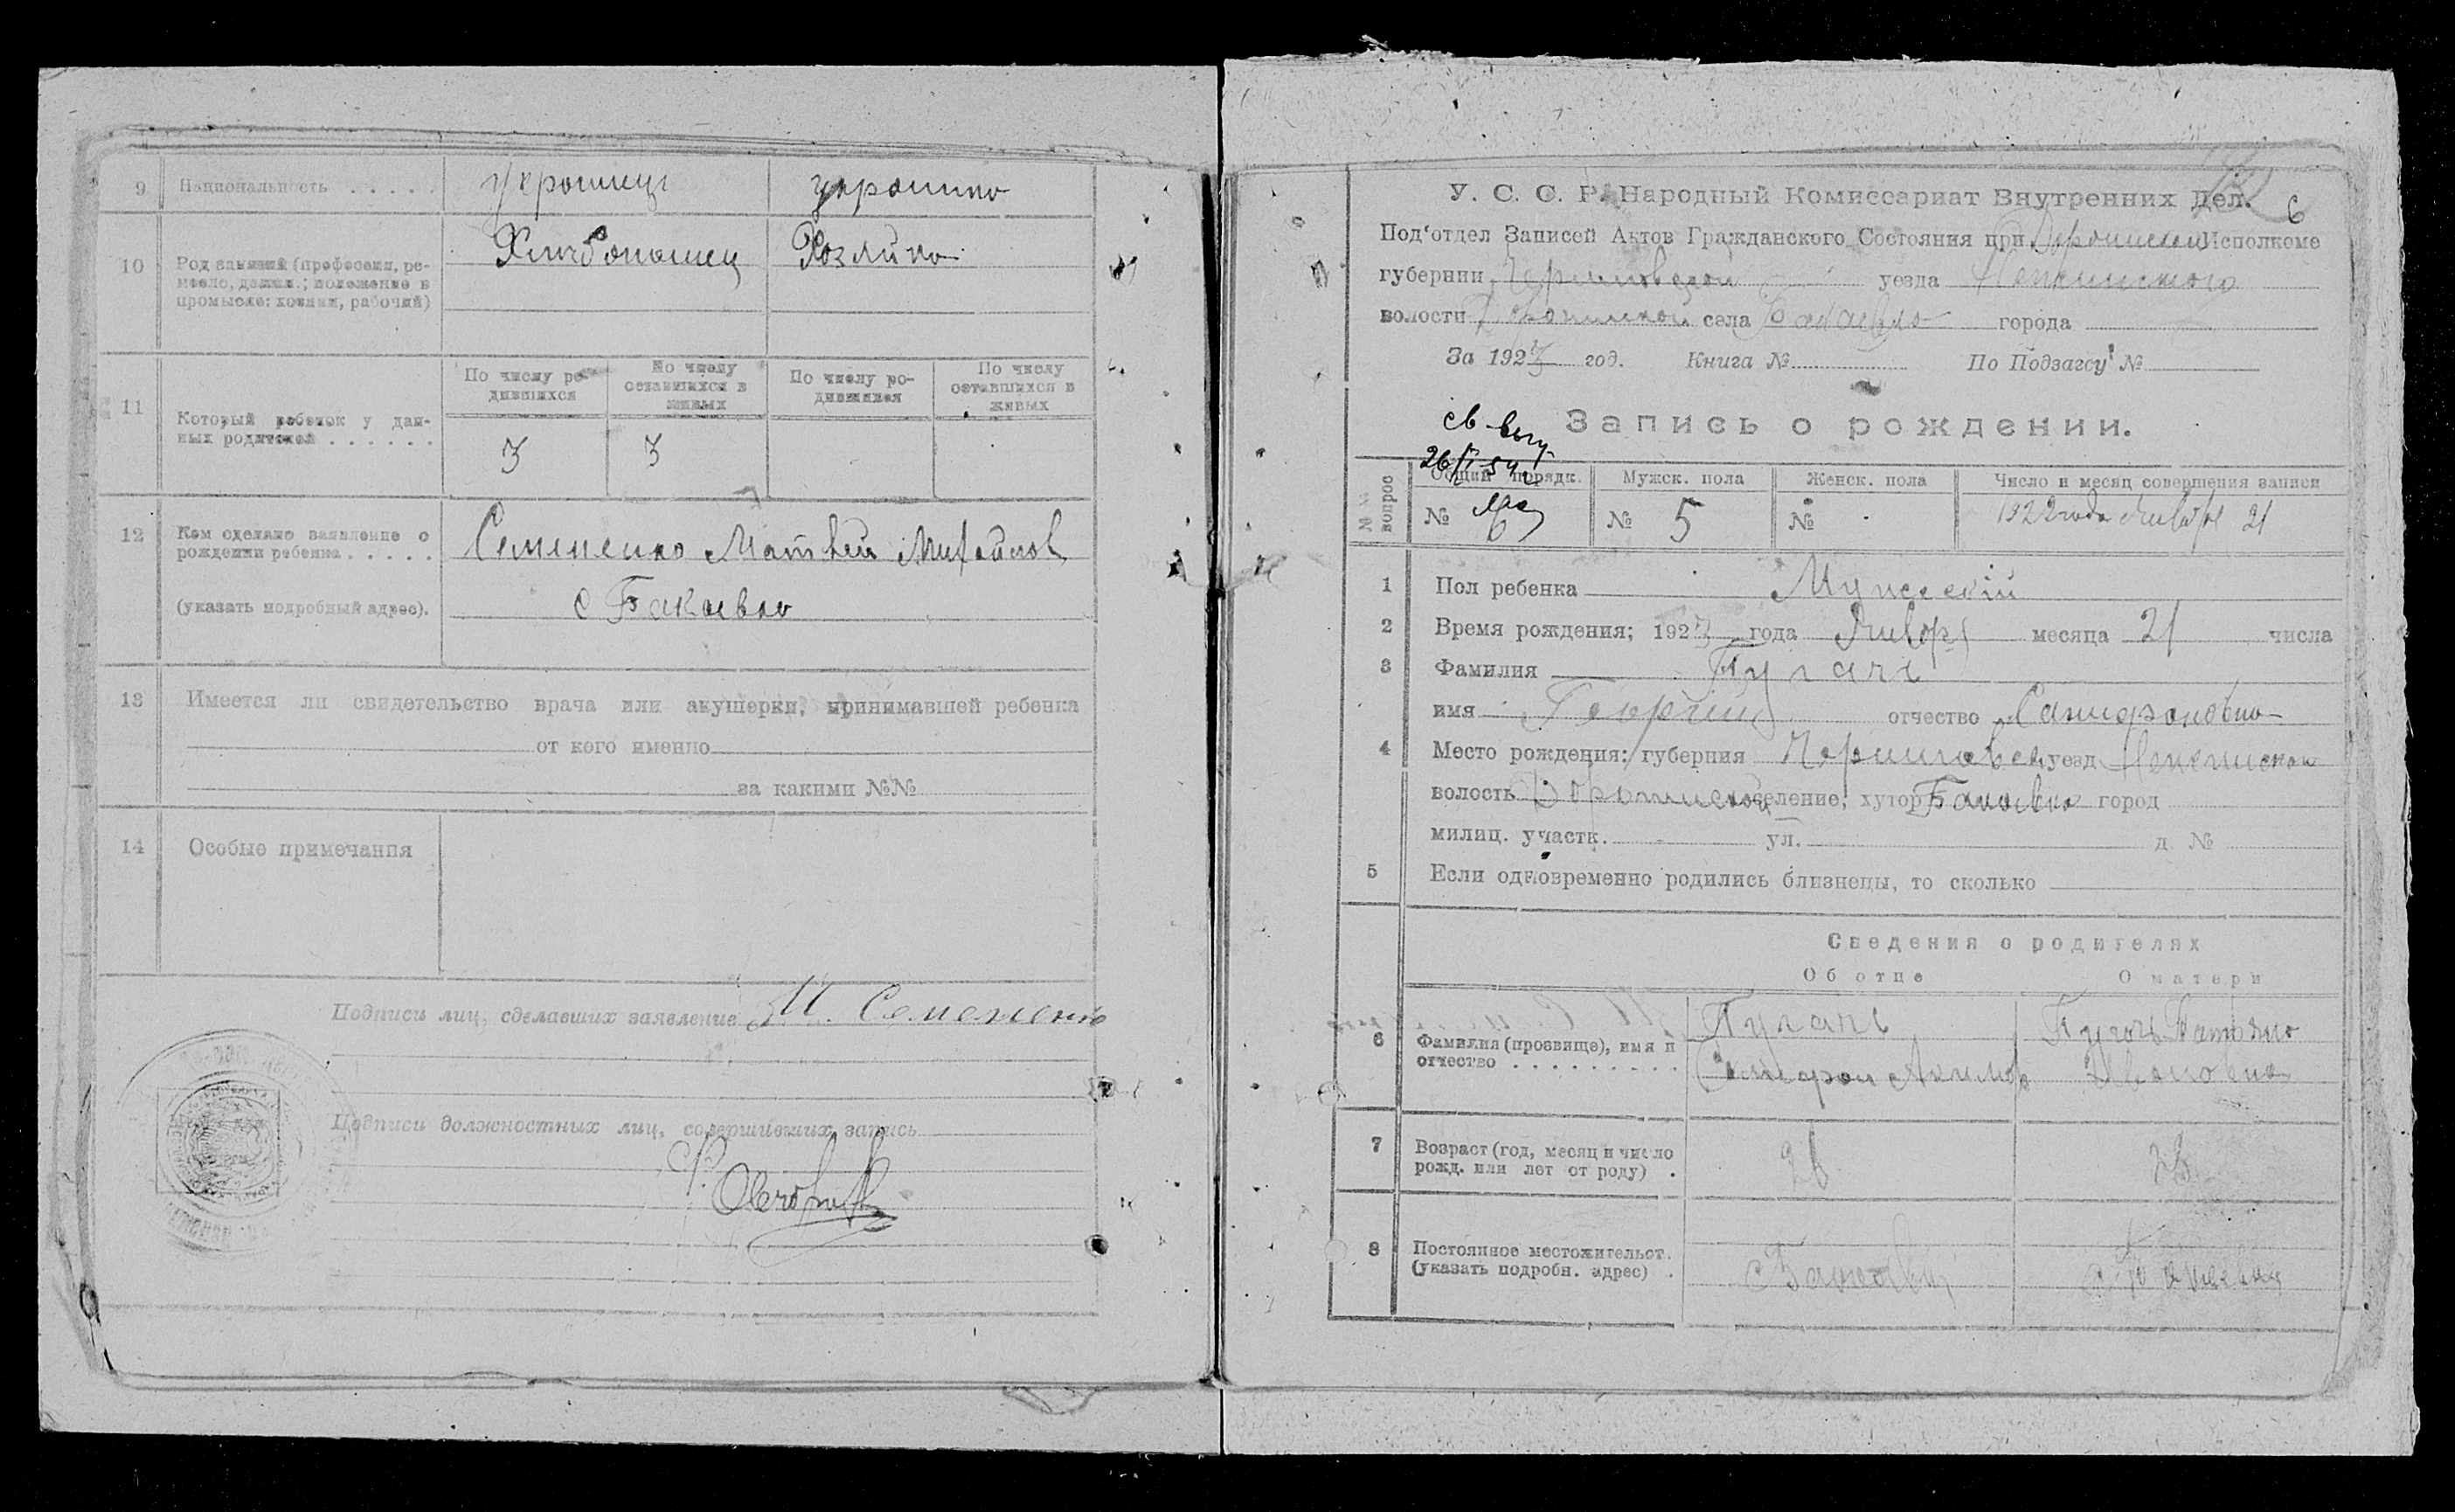 9 Национальность . . . . .
10 Род занятий (профессия, ре-
месло, должн.; положение в
промысле: хозяин, рабочий)
Хозяйка
11 Который ребенок у дан-
ных родителей . . . . . .
По числу ро-
дившихся
По числу
оставшихся в
живых
По числу ро-
дившихся
По числу
оставшихся в
живых
3 3
12 Кем сделано заявление о
рождении ребенка . . . . .
Семененко Матвей Михайлов
(указать подробный адрес).
с Бакаевка
13 Имеется ли свидетельство врача или акушерки, принимавшей ребенка
от кого именно
за какими №№
14 Особые примечания
Подписи лиц, сделавших заявление М. Семененко
Подписи должностных лиц, совершивших запись
У. С. С. Р. Народный Комиссариат Внутренних Дел. 6
Под'отдел Записей Актов Гражданского Состояния при Исполкоме
губернии Черниговской уезда Нежинского
волости села Бакаевка города
За 1923 год. Книга № По Подзагсу №
Запись о рождении.
№№ вопрос
Общий порядк. Мужск. пола Женск. пола Число и месяц совершения записи
№ 6 № 5 № 1922 года Января 21
1 Пол ребенка Мужеский
2 Время рождения; 1923 года Января месяца 21 числа
3 Фамилия Пугачь
имя Георгий отчество
4 Место рождения: губерния Черниговск уезд Неженской
волость поселение, хутор Бакаевка город
милиц. участк. ул. д №
5 Если одновременно родились близнецы, то сколько
Сведения о родителях
Об отце О матери
6 Фамилия (прозвище), имя и
отчество . . . . . . . . .
Пугачь
Акимов
Пугачь Татьяна
Ивановна
7 Возраст (год, месяц и число
рожд. или лет от роду) .
26 28
8 Постоянное местожительст.
(указать подробн. адрес) .
с Бакаевка